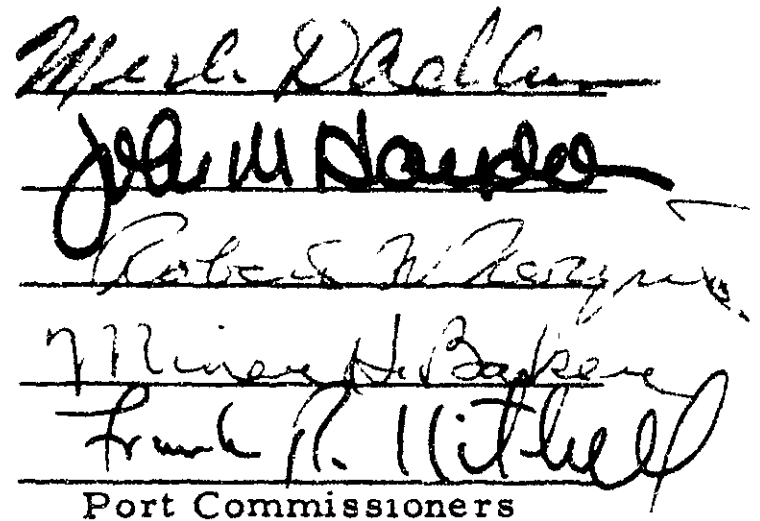 Merle D Adlum
John M Haydon
Robert W Norquist
Miner H. Baker
Frank R. Kitchell
Port Commissioners